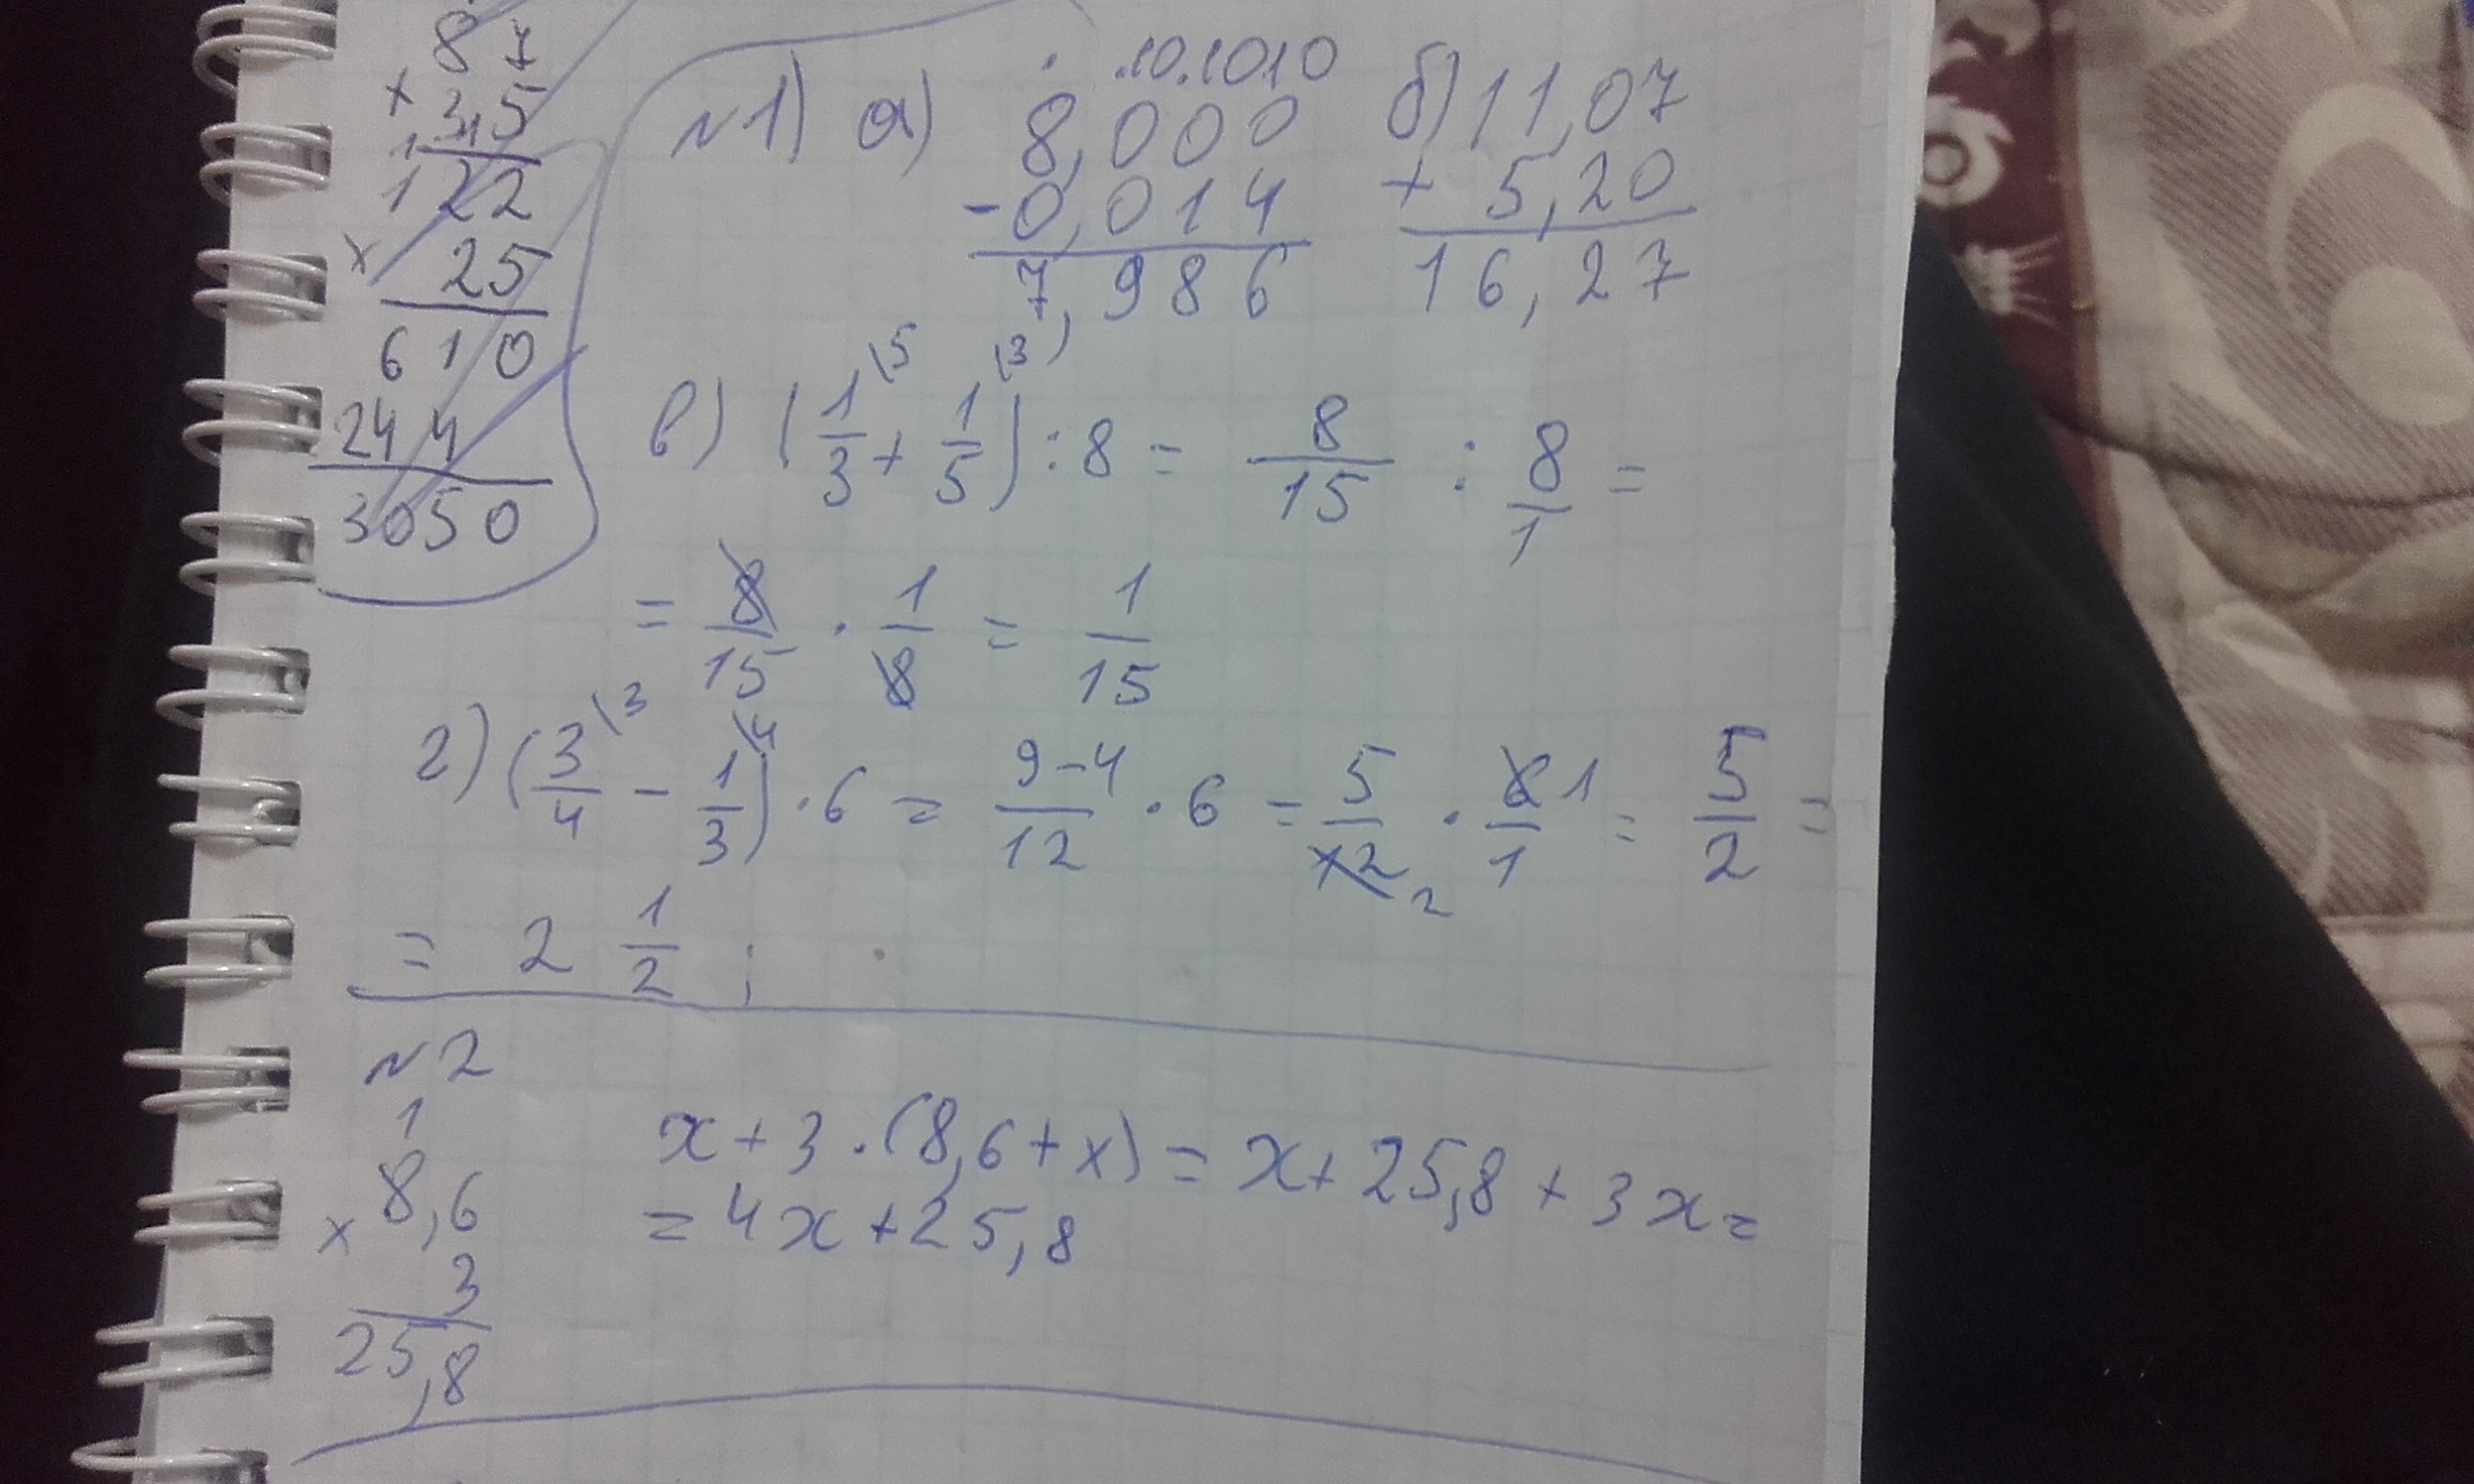 87
× 35
1
122
× 25
610
244
3050
№1) а) .10.1010
8,000
-0,014
7,986
б) 11,07
+ 5,20
16,27
в) (1/3 \5 + 1/5 \3) : 8 = 8/15 : 8/1 =
= 8/15 · 1/8 = 1/15
г) (3/4 \3 - 1/3 \4) · 6 = 9-4/12 · 6 = 5/12 2 · 6/1 1 = 5/2 =
= 2 1/2 ;
№2
1
8,6
× 3
25,8
x + 3 · (8,6 + x) = x + 25,8 + 3x =
= 4x + 25,8